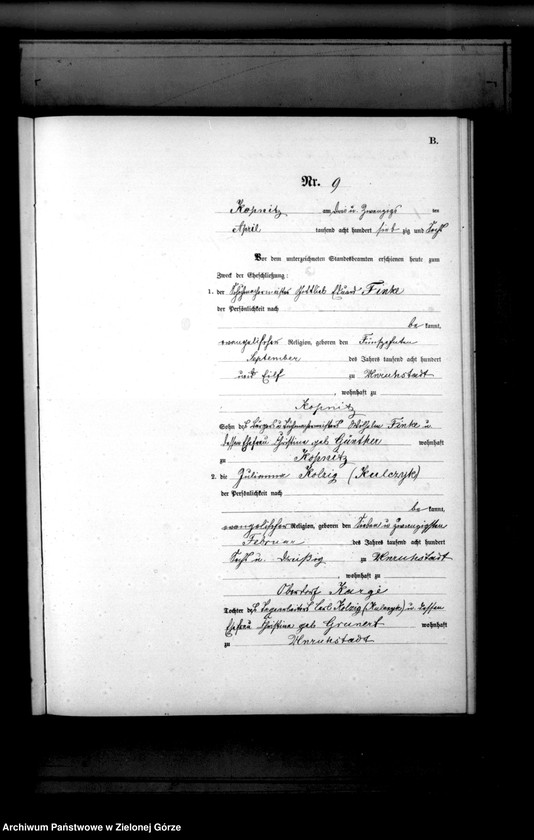 B.
Nr. 9
Kopnitz am drei u. zwanzigs ten
April tausend acht hundert sieb zig und Sechs
Vor dem unterzeichneten Standesbeamten erschienen heute zum
Zweck der Eheschließung:
1. der Schuhmachermeister Gottlieb Eduard Finke
der Persönlichkeit nach
be kannt,
evangelischer Religion, geboren den Fünfzehnten
September des Jahres tausend acht hundert
und Eilf zu Unruhstadt
, wohnhaft zu
Kopnitz
Sohn des Bürgers u. Wilhelm Finke u
dessen Ehefrau Christina geb Günther wohnhaft
zu Kopnitz
2. die Julianna Kolzig (Kulczyk)
der Persönlichkeit nach
be kannt,
evangelischer Religion, geboren den Sieben u. zwanzigsten
Februar des Jahres tausend acht hundert
Sechs u. Dreißig zu Unruhstadt
, wohnhaft zu
Oberdorf Karge
Tochter des Carl Kolzig (Kulczyk) u. dessen
Ehefrau Christina geb Grunert wohnhaft
zu Unruhstadt
Archiwum Państwowe w Zielonej Górze